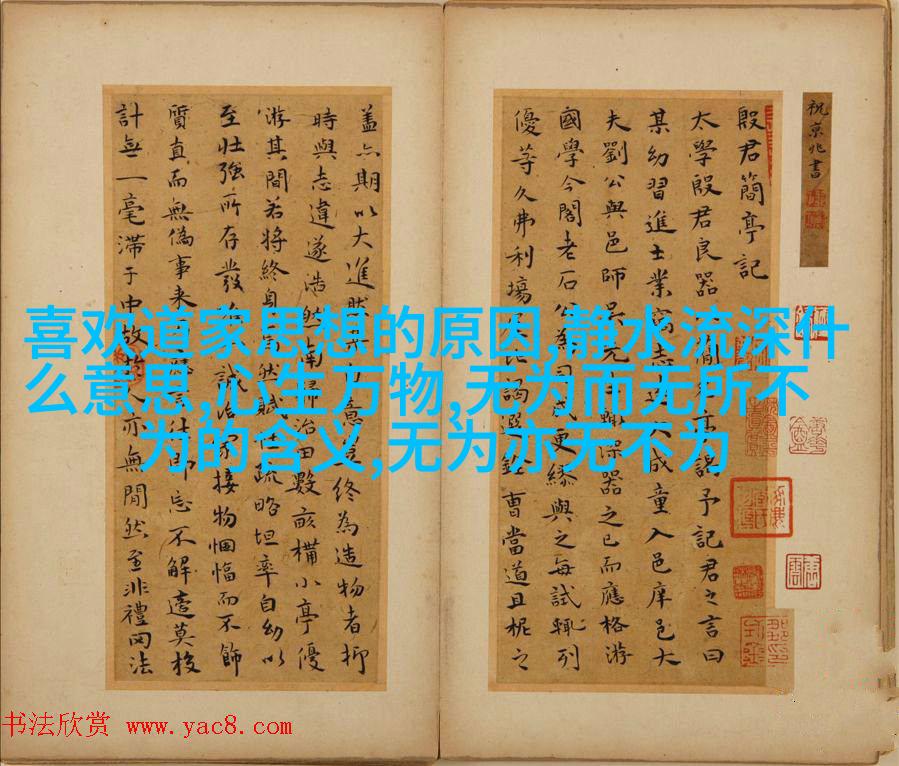 祝京兆書
殷君簡亭記
太學殷君民器
某幼習進士業
夫劉公與邑師
國學今閣老石公為
優等久弗利場
予記君之言曰
成童入邑庠邑大
器之已而應格游
更繇與之每試輒列
曹當道且柅之
蓋亦期以大進
時與志違遂浩然南歸治田數畝構小亭優
游其間若將終身
至壯強所存發
質真而無偽事來
計無一毫滯于中故
意若終為造物者抑
賦性疏略坦率自幼以
接物悃愊而不飾
即忘不解逵莫校
人亦無閒然至非禮罔法
喜欢道家思想的原因,静水流深什
么意思,心生万物,无为而无所不
为的含义,无为亦无不为
书法欣赏 www.yac8.com